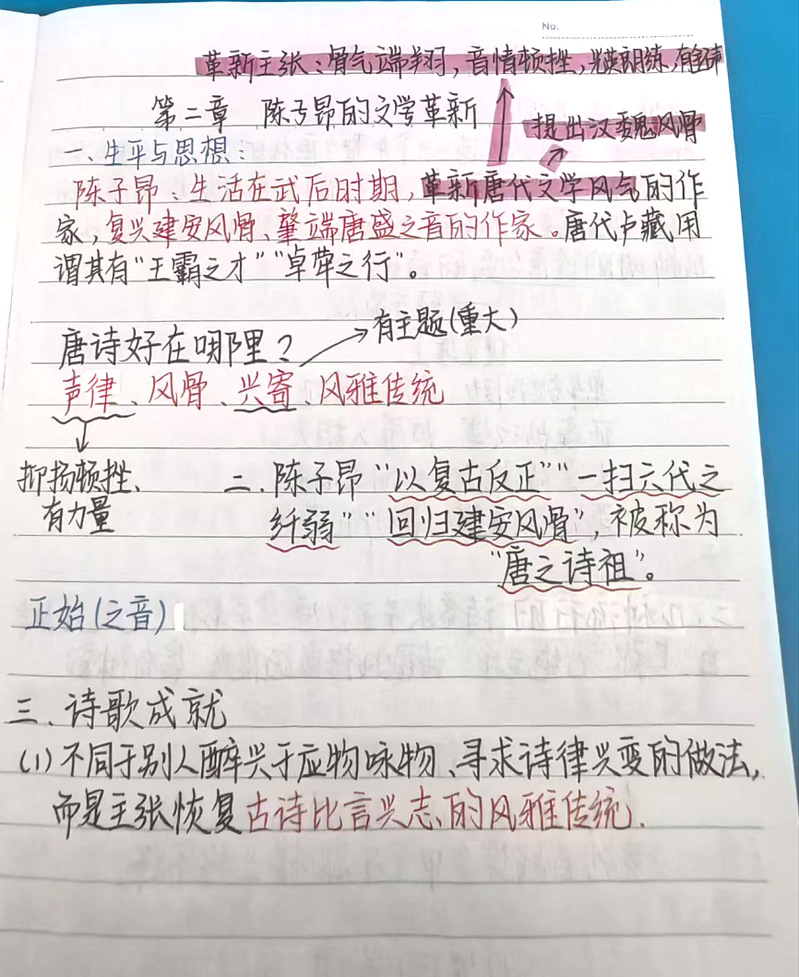 No.
革新主张：骨气端翔，音情顿挫，光英朗练，有金石声
第二章 陈子昂的文学革新
提出汉魏风骨
一、生平与思想：
陈子昂：生活在武后时期，革新唐代文学风气的作
家，复兴建安风骨、肇端唐盛之音的作家。唐代卢藏用
谓其有“王霸之才”“卓荦之行”。
有主题(重大)
唐诗好在哪里？
声律、风骨、兴寄、风雅传统
抑扬顿挫、
有力量
二.陈子昂“以复古反正”“一扫六代之
纤弱”“回归建安风骨”，被称为
“唐之诗祖”。
正始(之音)
三.诗歌成就
(1)不同于别人醉兴于应物咏物、寻求诗律兴变的做法，
而是主张恢复古诗比言兴志的风雅传统.